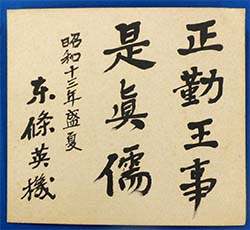 正勤王事
是眞儒
昭和十三年盛夏
东條英機